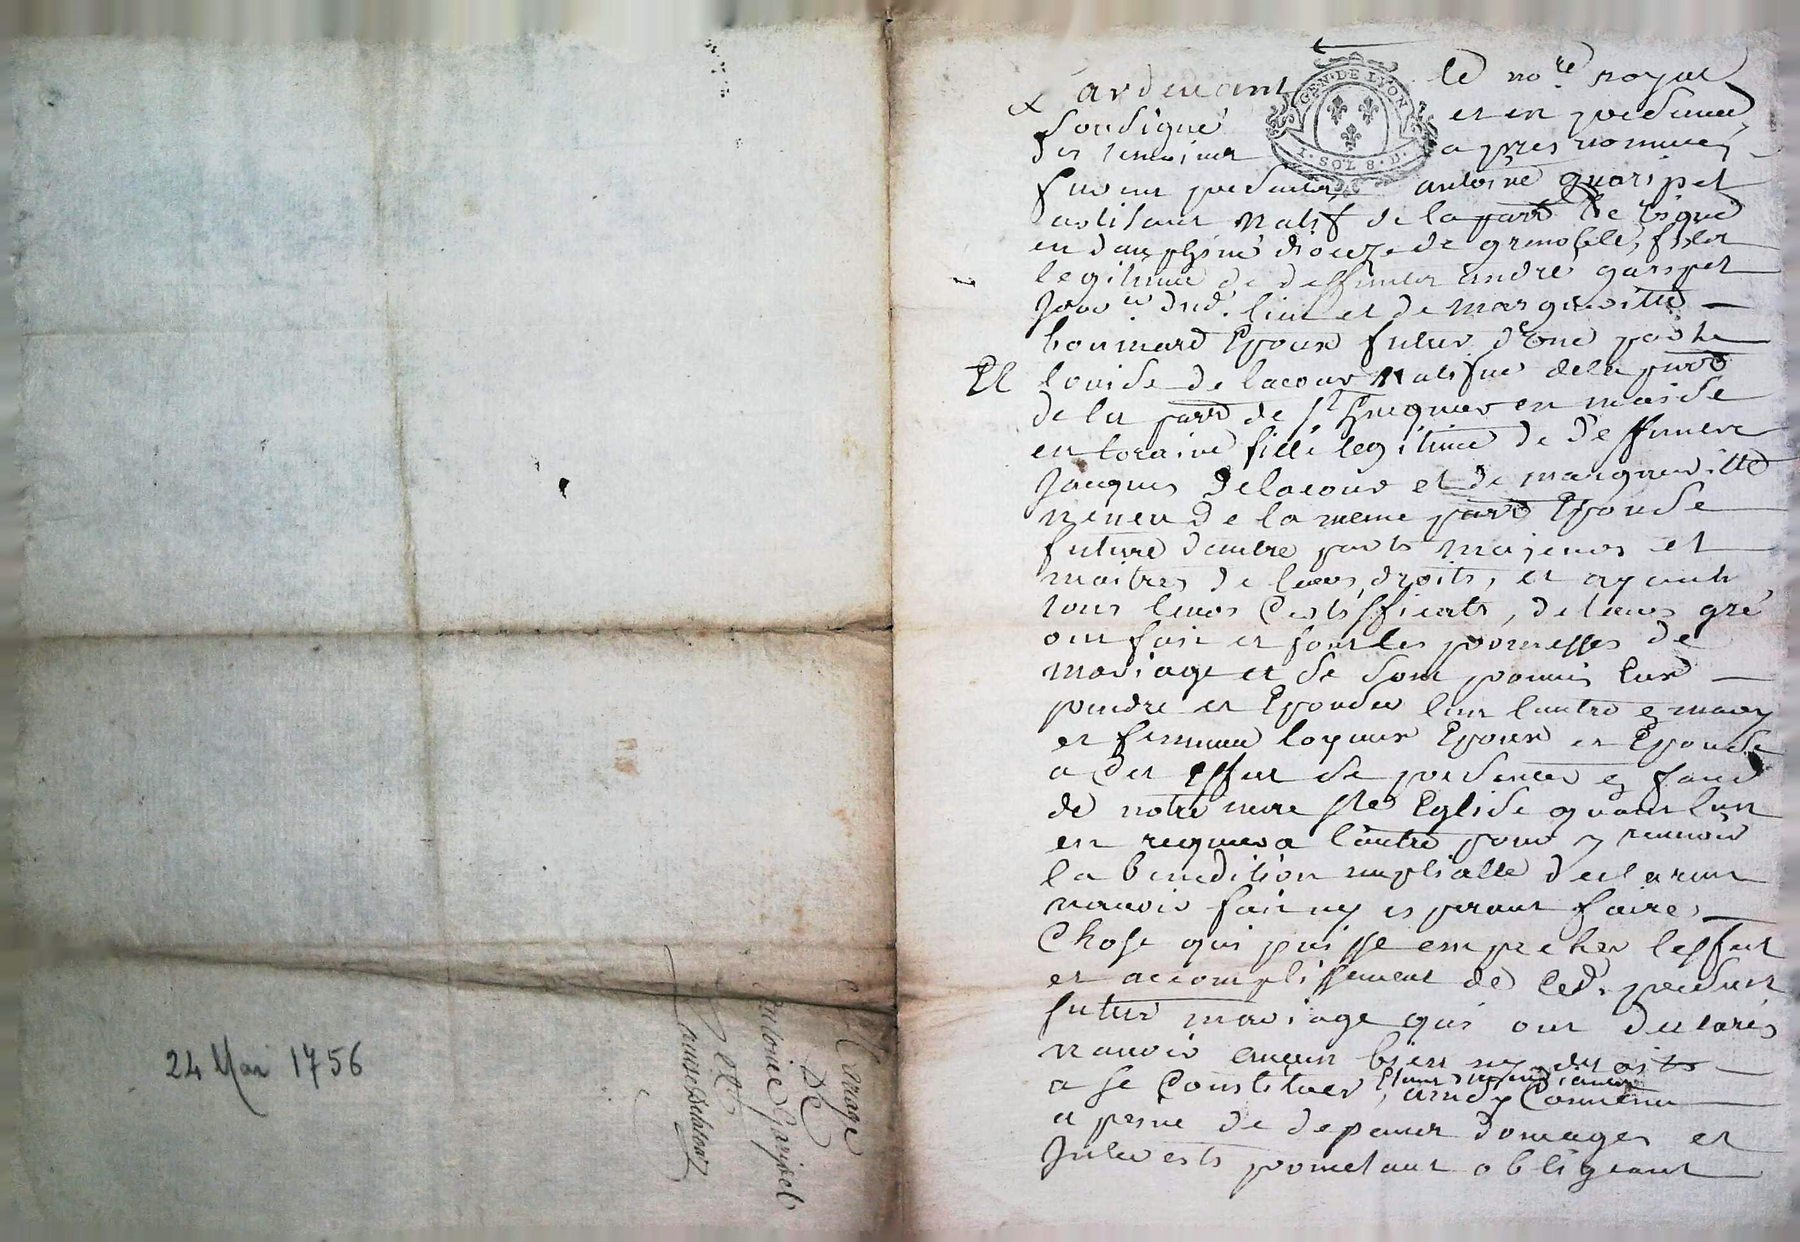 24 Mai 1756
Mariage
De
Antoine Garipel
Et
Louise Delacour
GEN·DE LYON
1·SOL 8·D·
Pardevant le no.re royal
soussigné et en presence
des temoins apres nommés
furent presents antoine guaripel
artisant natif de la parr.
en dauphiné dioceze de grenoble, fils
legitime de deffunt andré garipel
dud. lieu et de margueritte
Epoux futur d'une parte
Et louise de lacour natifve de la parr.
de la parr. de St en
en loraine fille legitime de deffunct
Jacques Delacour et de margueritte
de la meme parr. Epouse
future dautre parts majeurs et
maitres de leurs droits, et ayant
tous leurs Certifficats, de leurs gré
ont fait et font les promesses de
mariage et se sont promis
prendre et Epouser lun lautre en mary
et femme loyaux Epoux et Epouse
a cet effet se presenter en face
de notre mere ste Eglise quant lun
en requera lautre pour y recevoir
la benedition nuptialle declarant
navoir fait ny faire
Chose qui puisse empecher leffet
et accomplissement de ced. present
futur mariage qui ont declarés
navoir aucun bien ny droits
a se Constituer, ainsy Convenu
a peine de depens domages et
Interests prometant obligeant